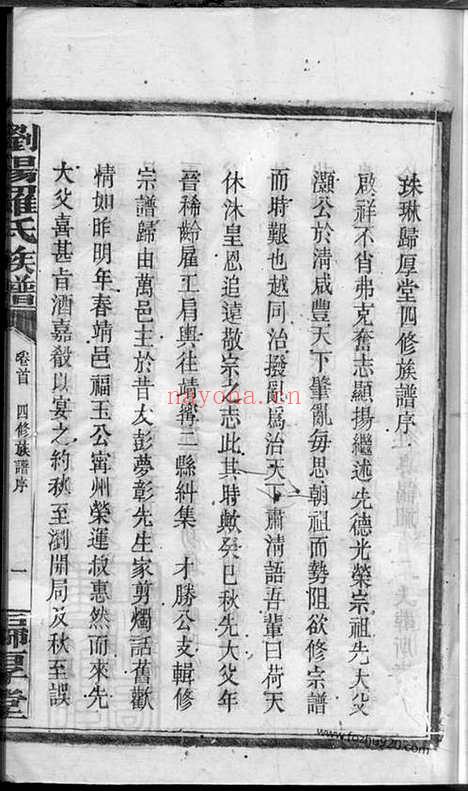 珠琳歸厚堂四修族譜序
啟祥不肖弗克奮志顯揚繼述先德光榮宗祖先大父
灝公於清咸豐天下肇亂每思朝祖而勢阻欲修宗譜
而時艱也越同治撥亂爲治天下肅清語吾輩曰荷天
休沐皇恩追遠敬宗之志此其時歟癸巳秋先大父年
晉稀齡雇工肩輿往靖寗二縣糾集 才勝公支輯修
宗譜歸由萬邑主於昔友彭夢彰先生家剪燭話舊歡
情如昨明年春靖邑福玉公甯州榮運叔惠然而來先
大父喜甚旨酒嘉殽以宴之約秋至瀏開局及秋至誤
瀏陽羅氏族譜
卷首 四修族譜序
一
歸厚堂
nayona.cn
www.fozhu920.com